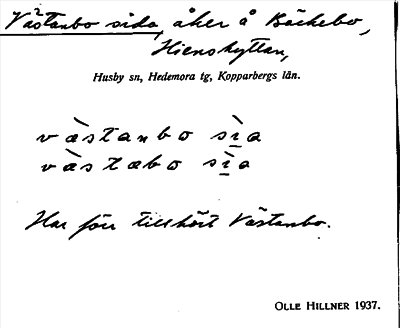 Västanbo sida, åker å Bäckebo,
Hienshyttan,
Husby sn, Hedemora tg, Kopparbergs län.
vàstanbo sìa
vàstabo sìa
Har förr tillhört Västanbo.
OLLE HILLNER 1937.